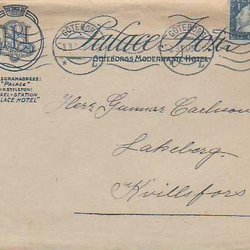 GÖTEBORG
Palace Hotel
GÖTEBORGS MODERNASTE HOTEL
TELEGRAMADRESS:
"PALACE"
RIKSTELEFON:
VÄXEL-STATION
"PALACE HOTEL"
Herr Gunnar Carlsson
Lakeberg.
Kvillsfors